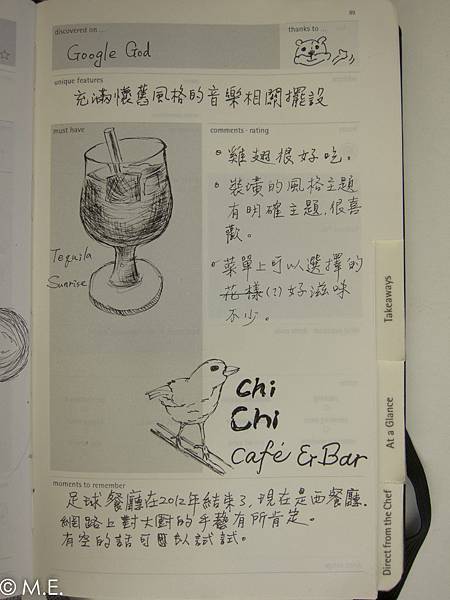 89
discovered on ...
thanks to ...
Google God
unique features
充滿懷舊風格的音樂相關擺設
must have
comments · rating
雞翅很好吃。
裝璜的風格主題
有明確主題,很喜
歡。
菜單上可以選擇的
花樣(?)好滋味
不少。
Tequila
Sunrise
Takeaways
At a Glance
Direct from the Chef
chi
Chi
Café & Bar
moments to remember
足球餐廳在2012年結束了,現在是西餐廳.
網路上對大廚的手藝有所肯定。
有空的話可以試試。
© M.E.